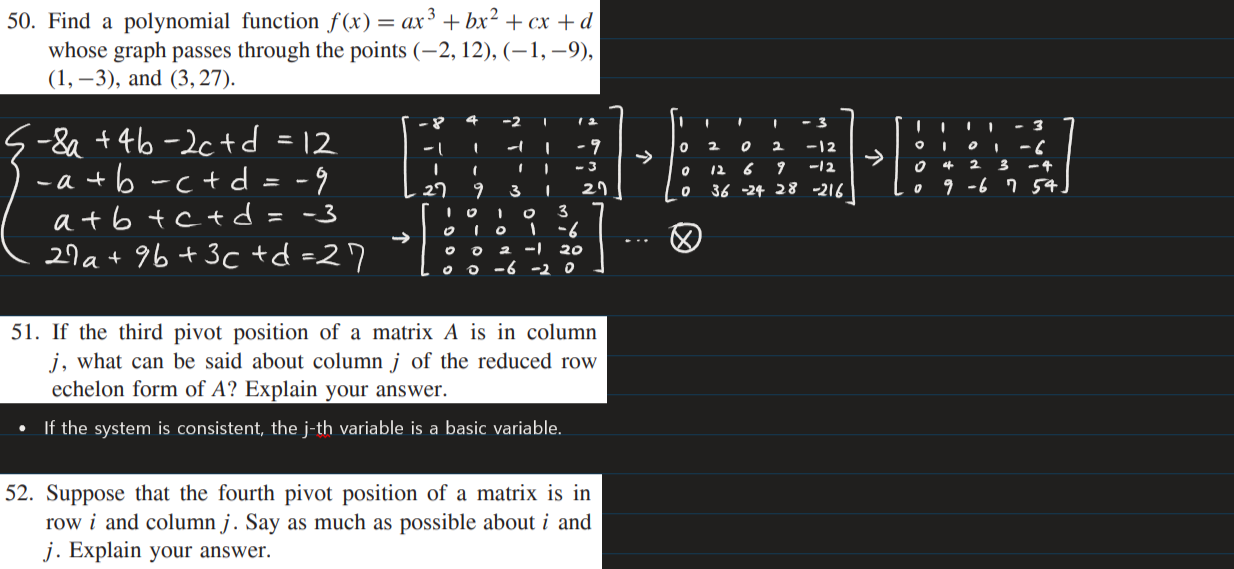 50. Find a polynomial function f(x) = ax³ + bx² + cx + d
whose graph passes through the points (−2, 12), (−1, −9),
(1, −3), and (3, 27).
-8a + 4b - 2c + d = 12
-a + b - c + d = -9
a + b + c + d = -3
27a + 9b + 3c + d = 27
-8 4 -2 1 12
-1 1 -1 1 -9
1 1 1 1 -3
27 9 3 1 27
→
1 1 1 1 -3
0 2 0 2 -12
0 12 6 9 -12
0 36 -24 28 -216
→
1 1 1 1 -3
0 1 0 1 -6
0 4 2 3 -4
0 9 -6 7 54
→
1 0 1 0 3
0 1 0 1 -6
0 0 2 -1 20
0 0 -6 -2 0
... ⊗
51. If the third pivot position of a matrix A is in column
j, what can be said about column j of the reduced row
echelon form of A? Explain your answer.
• If the system is consistent, the j-th variable is a basic variable.
52. Suppose that the fourth pivot position of a matrix is in
row i and column j. Say as much as possible about i and
j. Explain your answer.